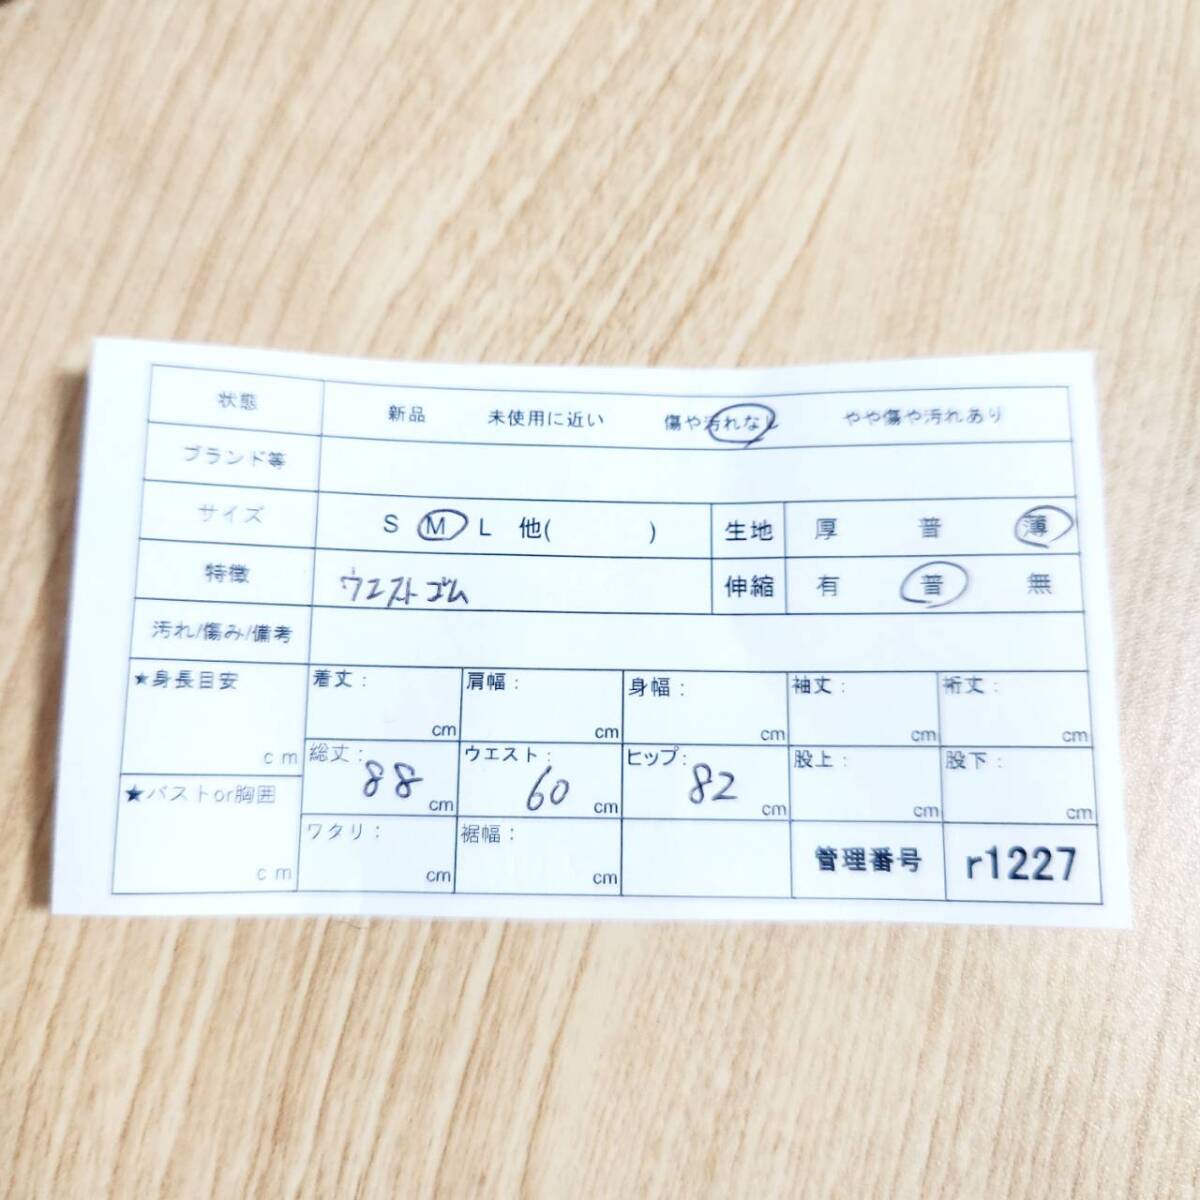 状態 新品 未使用に近い 傷や汚れなし やや傷や汚れあり
ブランド等
サイズ S M L 他( ) 生地 厚 普 薄
特徴 ウエストゴム 伸縮 有 普 無
汚れ/傷み/備考
★身長目安 cm
着丈: cm 肩幅: cm 身幅: cm 袖丈: cm 裄丈: cm
総丈: 88 cm ウエスト: 60 cm ヒップ: 82 cm 股上: cm 股下: cm
★バストor胸囲 cm
ワタリ: cm 裾幅: cm 管理番号 r1227